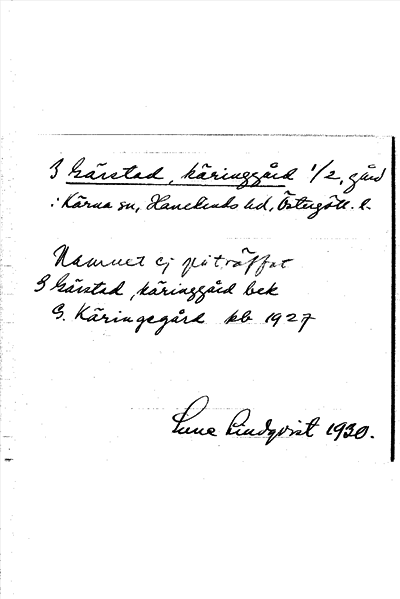 3 Gärstad, käringgård 1/2, gård
i Kärna sn, Hanekinds hd, Östergötl. l.
Namnet ej påträffat
3 Gärstad, käringgård bek
G. Käringegård kb 1927
Sune Lindqvist 1930.